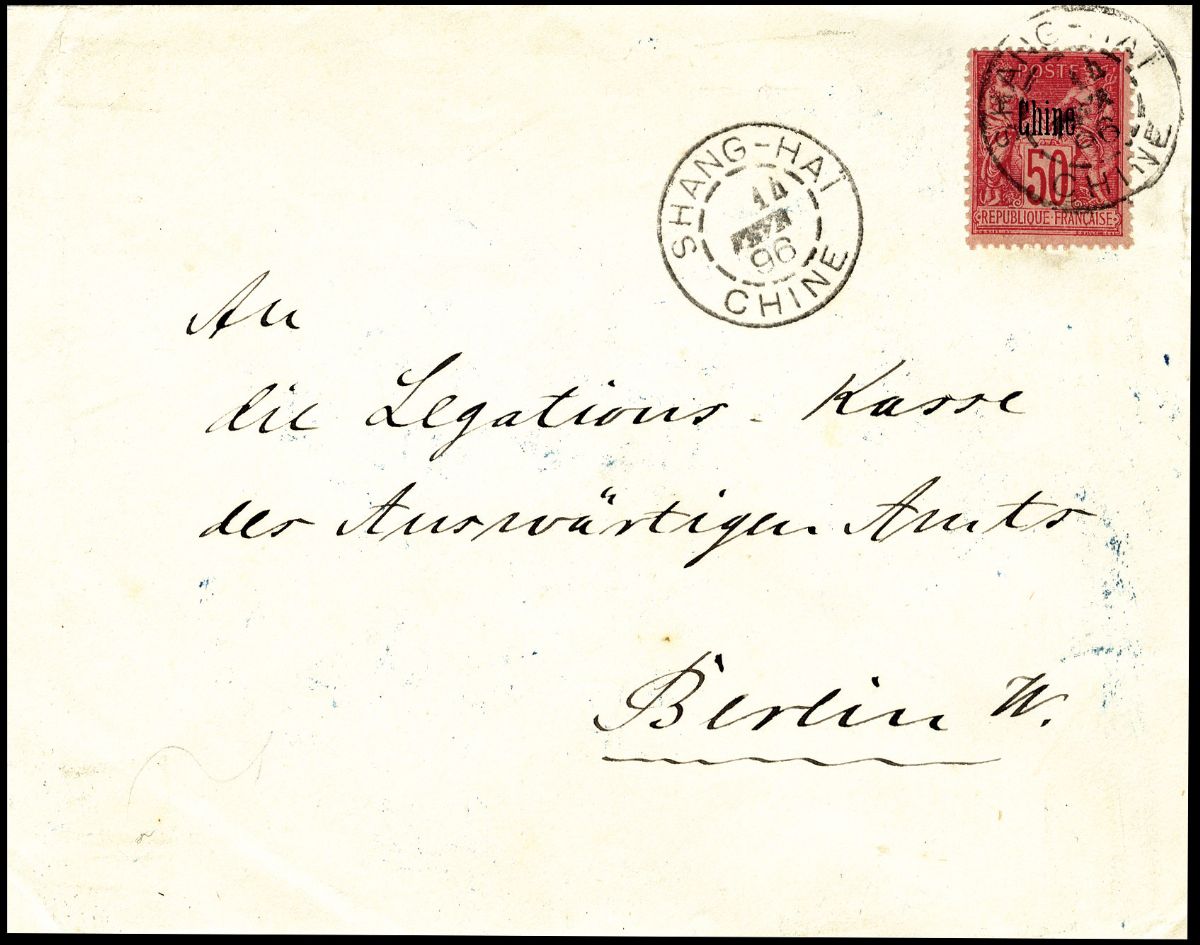 POSTE
Chine
50
REPUBLIQUE FRANÇAISE
SHANG-HAI
CHINE
SHANG-HAÏ
14
96
CHINE
An
die Legations-Kasse
des Auswärtigen Amts
Berlin W.